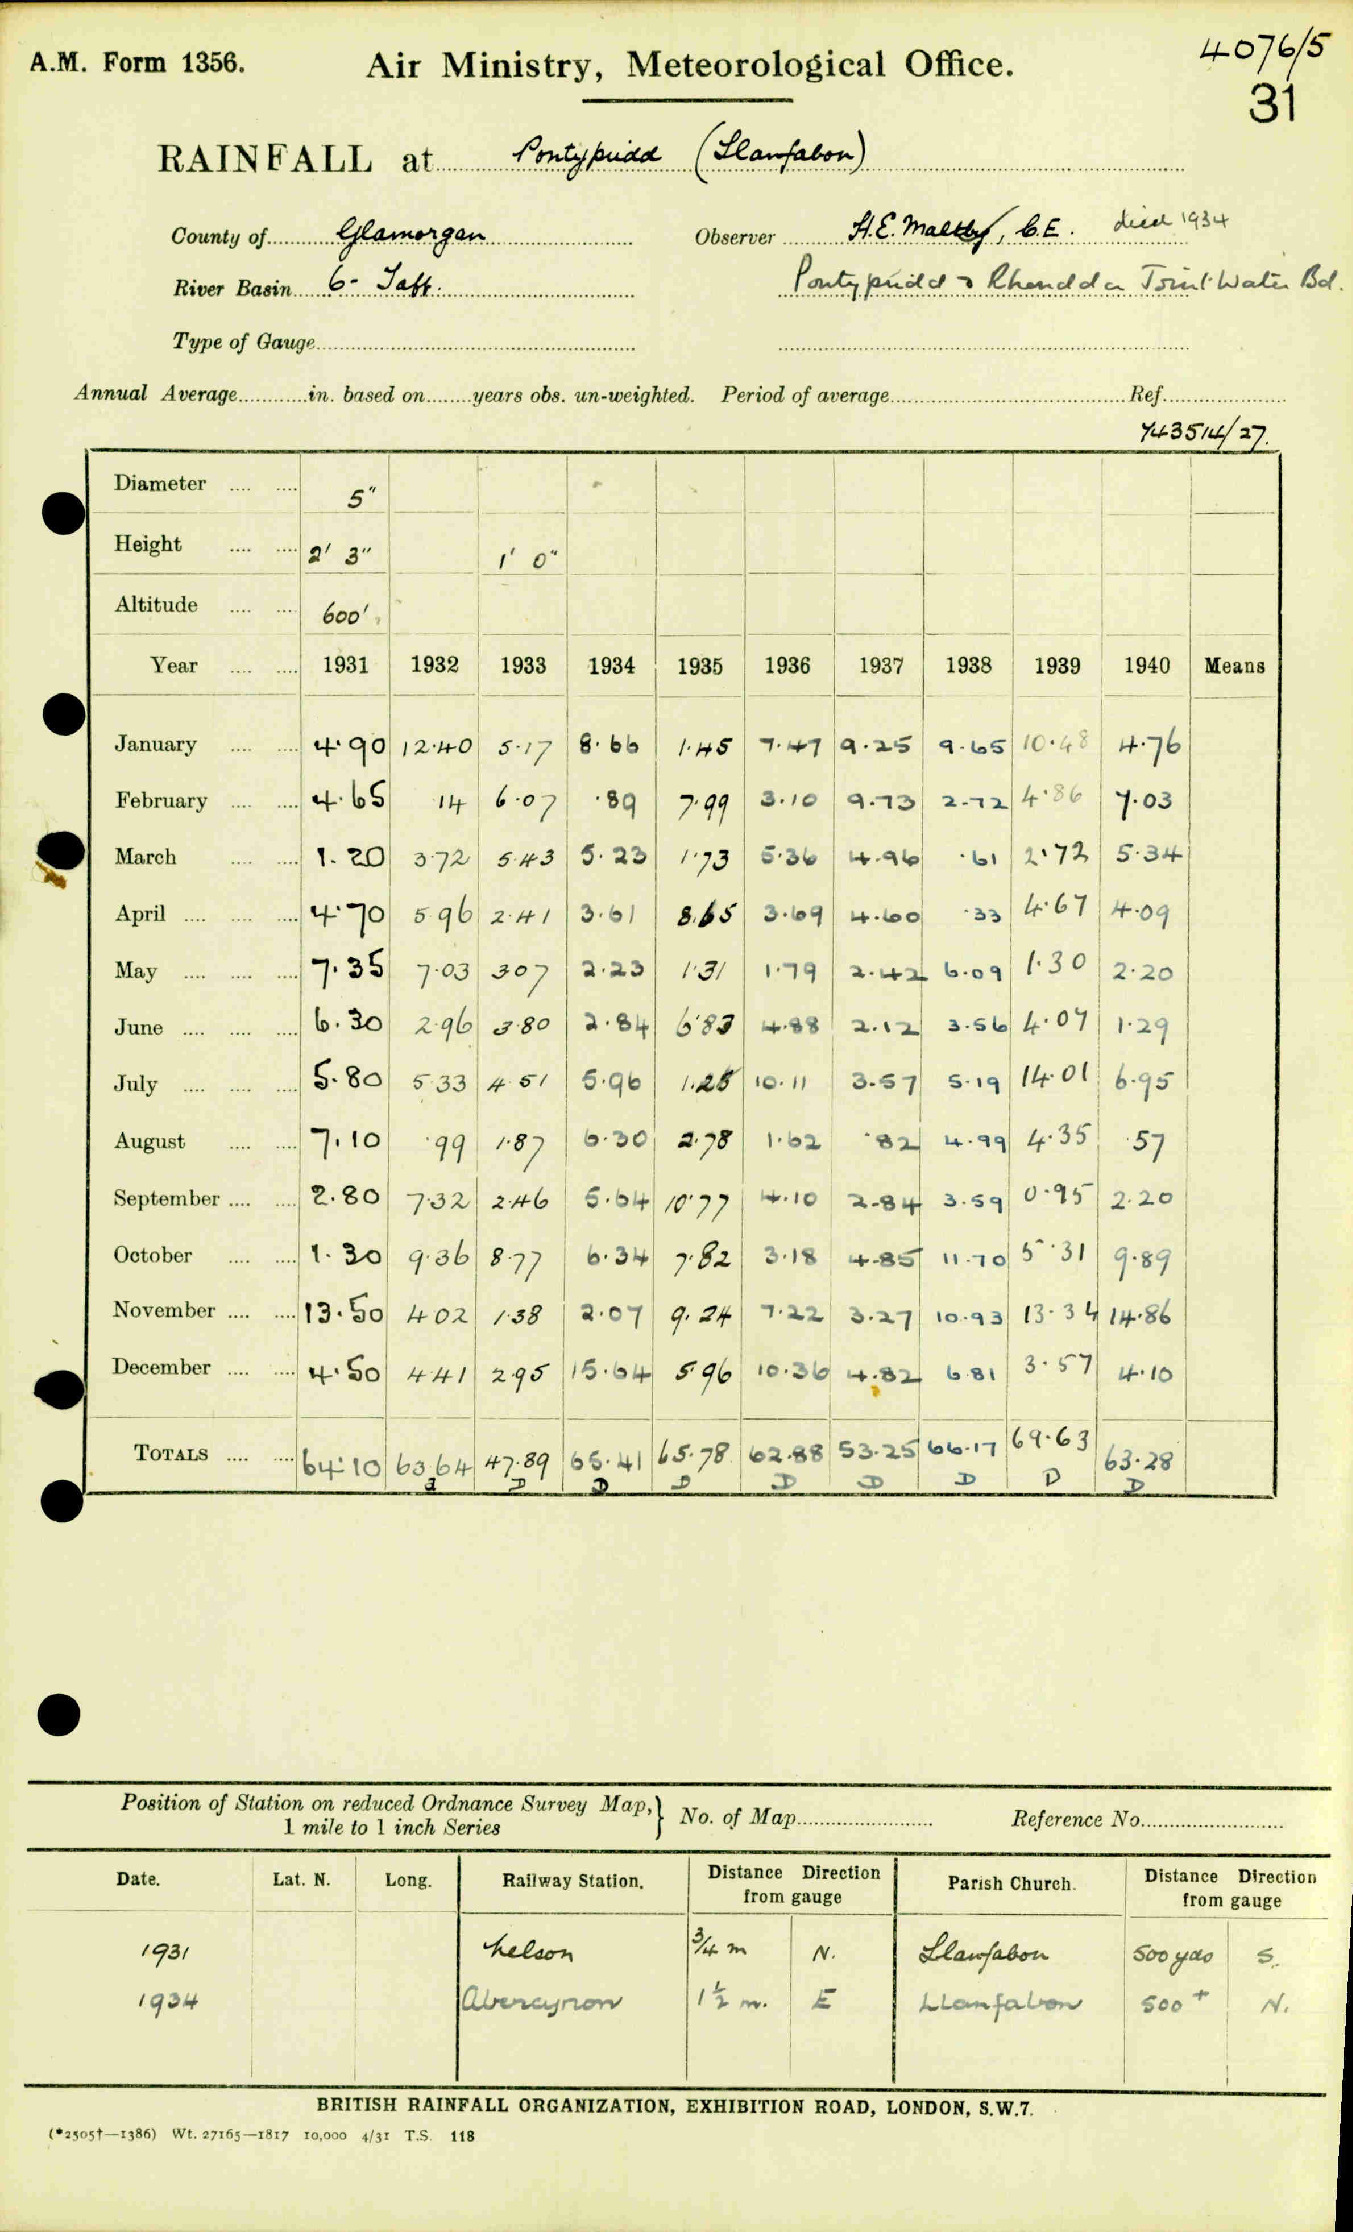 A.M. Form 1356. Air Ministry, Meteorological Office. 4076/5
31
RAINFALL at Pontypridd (Llanfabon)
County of Glamorgan Observer H.E. Maltby, C.E. died 1934
River Basin 6- Taff. Pontypridd & Rhondda Joint Water Bd.
Type of Gauge
Annual Average in. based on years obs. un-weighted. Period of average Ref.
743514/27.
Diameter 5"
Height 2' 3" 1' 0"
Altitude 600'
Year 1931 1932 1933 1934 1935 1936 1937 1938 1939 1940 Means
January 4.90 12.40 5.17 8.66 1.45 7.47 9.25 9.65 10.48 4.76
February 4.65 14 6.07 .89 7.99 3.10 9.73 2.72 4.86 7.03
March 1.20 3.72 5.43 5.23 1.73 5.36 4.96 .61 2.72 5.34
April 4.70 5.96 2.41 3.61 8.65 3.69 4.60 .33 4.67 4.09
May 7.35 7.03 3.07 2.23 1.31 1.79 2.42 6.09 1.30 2.20
June 6.30 2.96 3.80 2.84 6.83 4.88 2.12 3.56 4.07 1.29
July 5.80 5.33 4.51 5.96 1.25 10.11 3.57 5.19 14.01 6.95
August 7.10 .99 1.87 6.30 2.78 1.62 .82 4.99 4.35 .57
September 2.80 7.32 2.46 5.64 10.77 4.10 2.84 3.59 0.95 2.20
October 1.30 9.36 8.77 6.34 7.82 3.18 4.85 11.70 5.31 9.89
November 13.50 4.02 1.38 2.07 9.24 7.22 3.27 10.93 13.34 14.86
December 4.50 4.41 2.95 15.64 5.96 10.36 4.82 6.81 3.57 4.10
TOTALS 64.10 63.64 47.89 65.41 65.78 62.88 53.25 66.17 69.63 63.28
D D D D D D D D
Position of Station on reduced Ordnance Survey Map, No. of Map Reference No.
1 mile to 1 inch Series
Date. Lat. N. Long. Railway Station. Distance Direction from gauge Parish Church. Distance Direction from gauge
1931 Nelson 3/4 m N. Llanfabon 500 yds S.
1934 Abercynon 1 1/2 m. E Llanfabon 500 + N.
BRITISH RAINFALL ORGANIZATION, EXHIBITION ROAD, LONDON, S.W.7.
(*2505†—1386) Wt. 27165—1817 10,000 4/31 T.S. 118